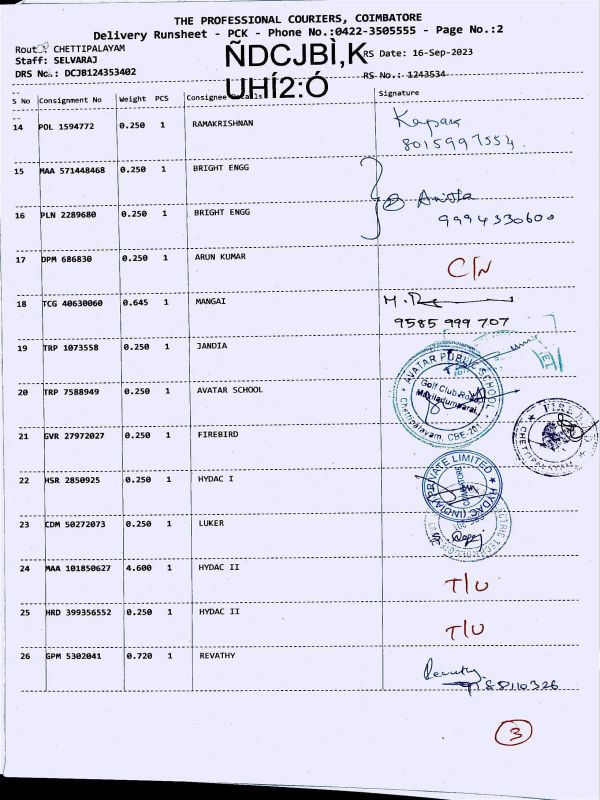 THE PROFESSIONAL COURIERS, COIMBATORE
Delivery Runsheet - PCK - Phone No.:0422-3505555 - Page No.:2
Route: CHETTIPALAYAM
ÑDCJBÌ,K
RS Date: 16-Sep-2023
Staff: SELVARAJ
DRS No.: DCJB124353402
UHÍ2:Ó
RS No.: 1243534
S No Consignment No Weight PCS Consignee Details Signature
14 POL 1594772 0.250 1 RAMAKRISHNAN
8015997554
15 MAA 571448468 0.250 1 BRIGHT ENGG
16 PLN 2289680 0.250 1 BRIGHT ENGG
Anitha
9994330600
17 DPM 686830 0.250 1 ARUN KUMAR C/N
18 TCG 40630060 0.645 1 MANGAI
9585 999 707
19 TRP 1073558 0.250 1 JANDIA
20 TRP 7588949 0.250 1 AVATAR SCHOOL
AVATAR PUBLIC SCHOOL
Golf Club Road,
Chettipalayam, CBE-201
21 GVR 27972027 0.250 1 FIREBIRD
FIREBIRD
CHETTIPALAYAM
22 HSR 2850925 0.250 1 HYDAC I
HYDAC (INDIA) PRIVATE LIMITED
COIMBATORE
23 CDM 50272073 0.250 1 LUKER
24 MAA 101850627 4.600 1 HYDAC II T/U
25 HRD 399356552 0.250 1 HYDAC II T/U
26 GPM 5302041 0.720 1 REVATHY
Revathy
3